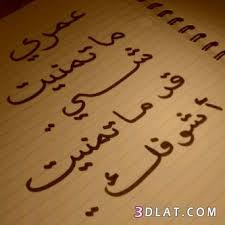 عمري
ما تمنيت
شي
قد ما تمنيت
أشوفك
3DLAT.COM